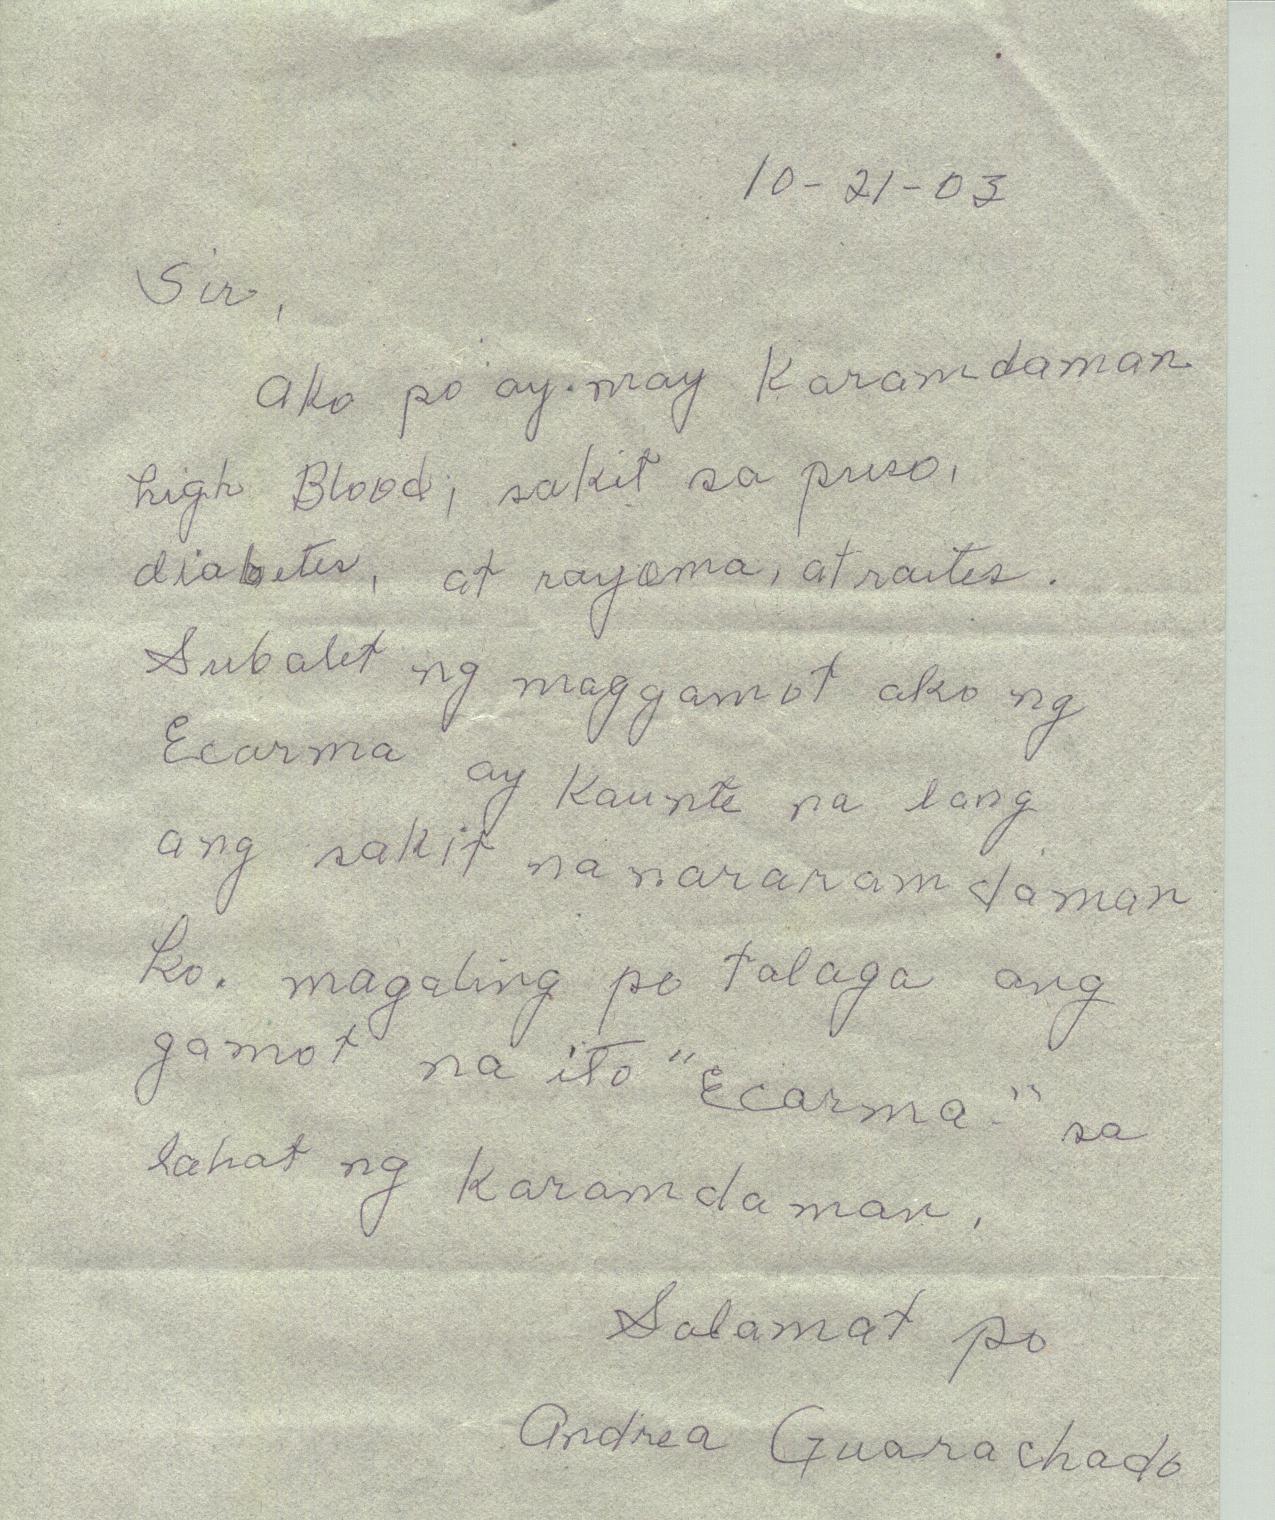 10-21-03
Sir,
Ako po ay may Karamdaman
high Blood, sakit sa puso,
diabetes, at rayoma, at raites.
Subalet ng maggamot ako ng
Ecarma ay Kaunte na lang
ang sakit na nararamdaman
ko. magaling po talaga ang
gamot na ito "Ecarma" sa
lahat ng Karamdaman,
Salamat po
Andrea Guarachado